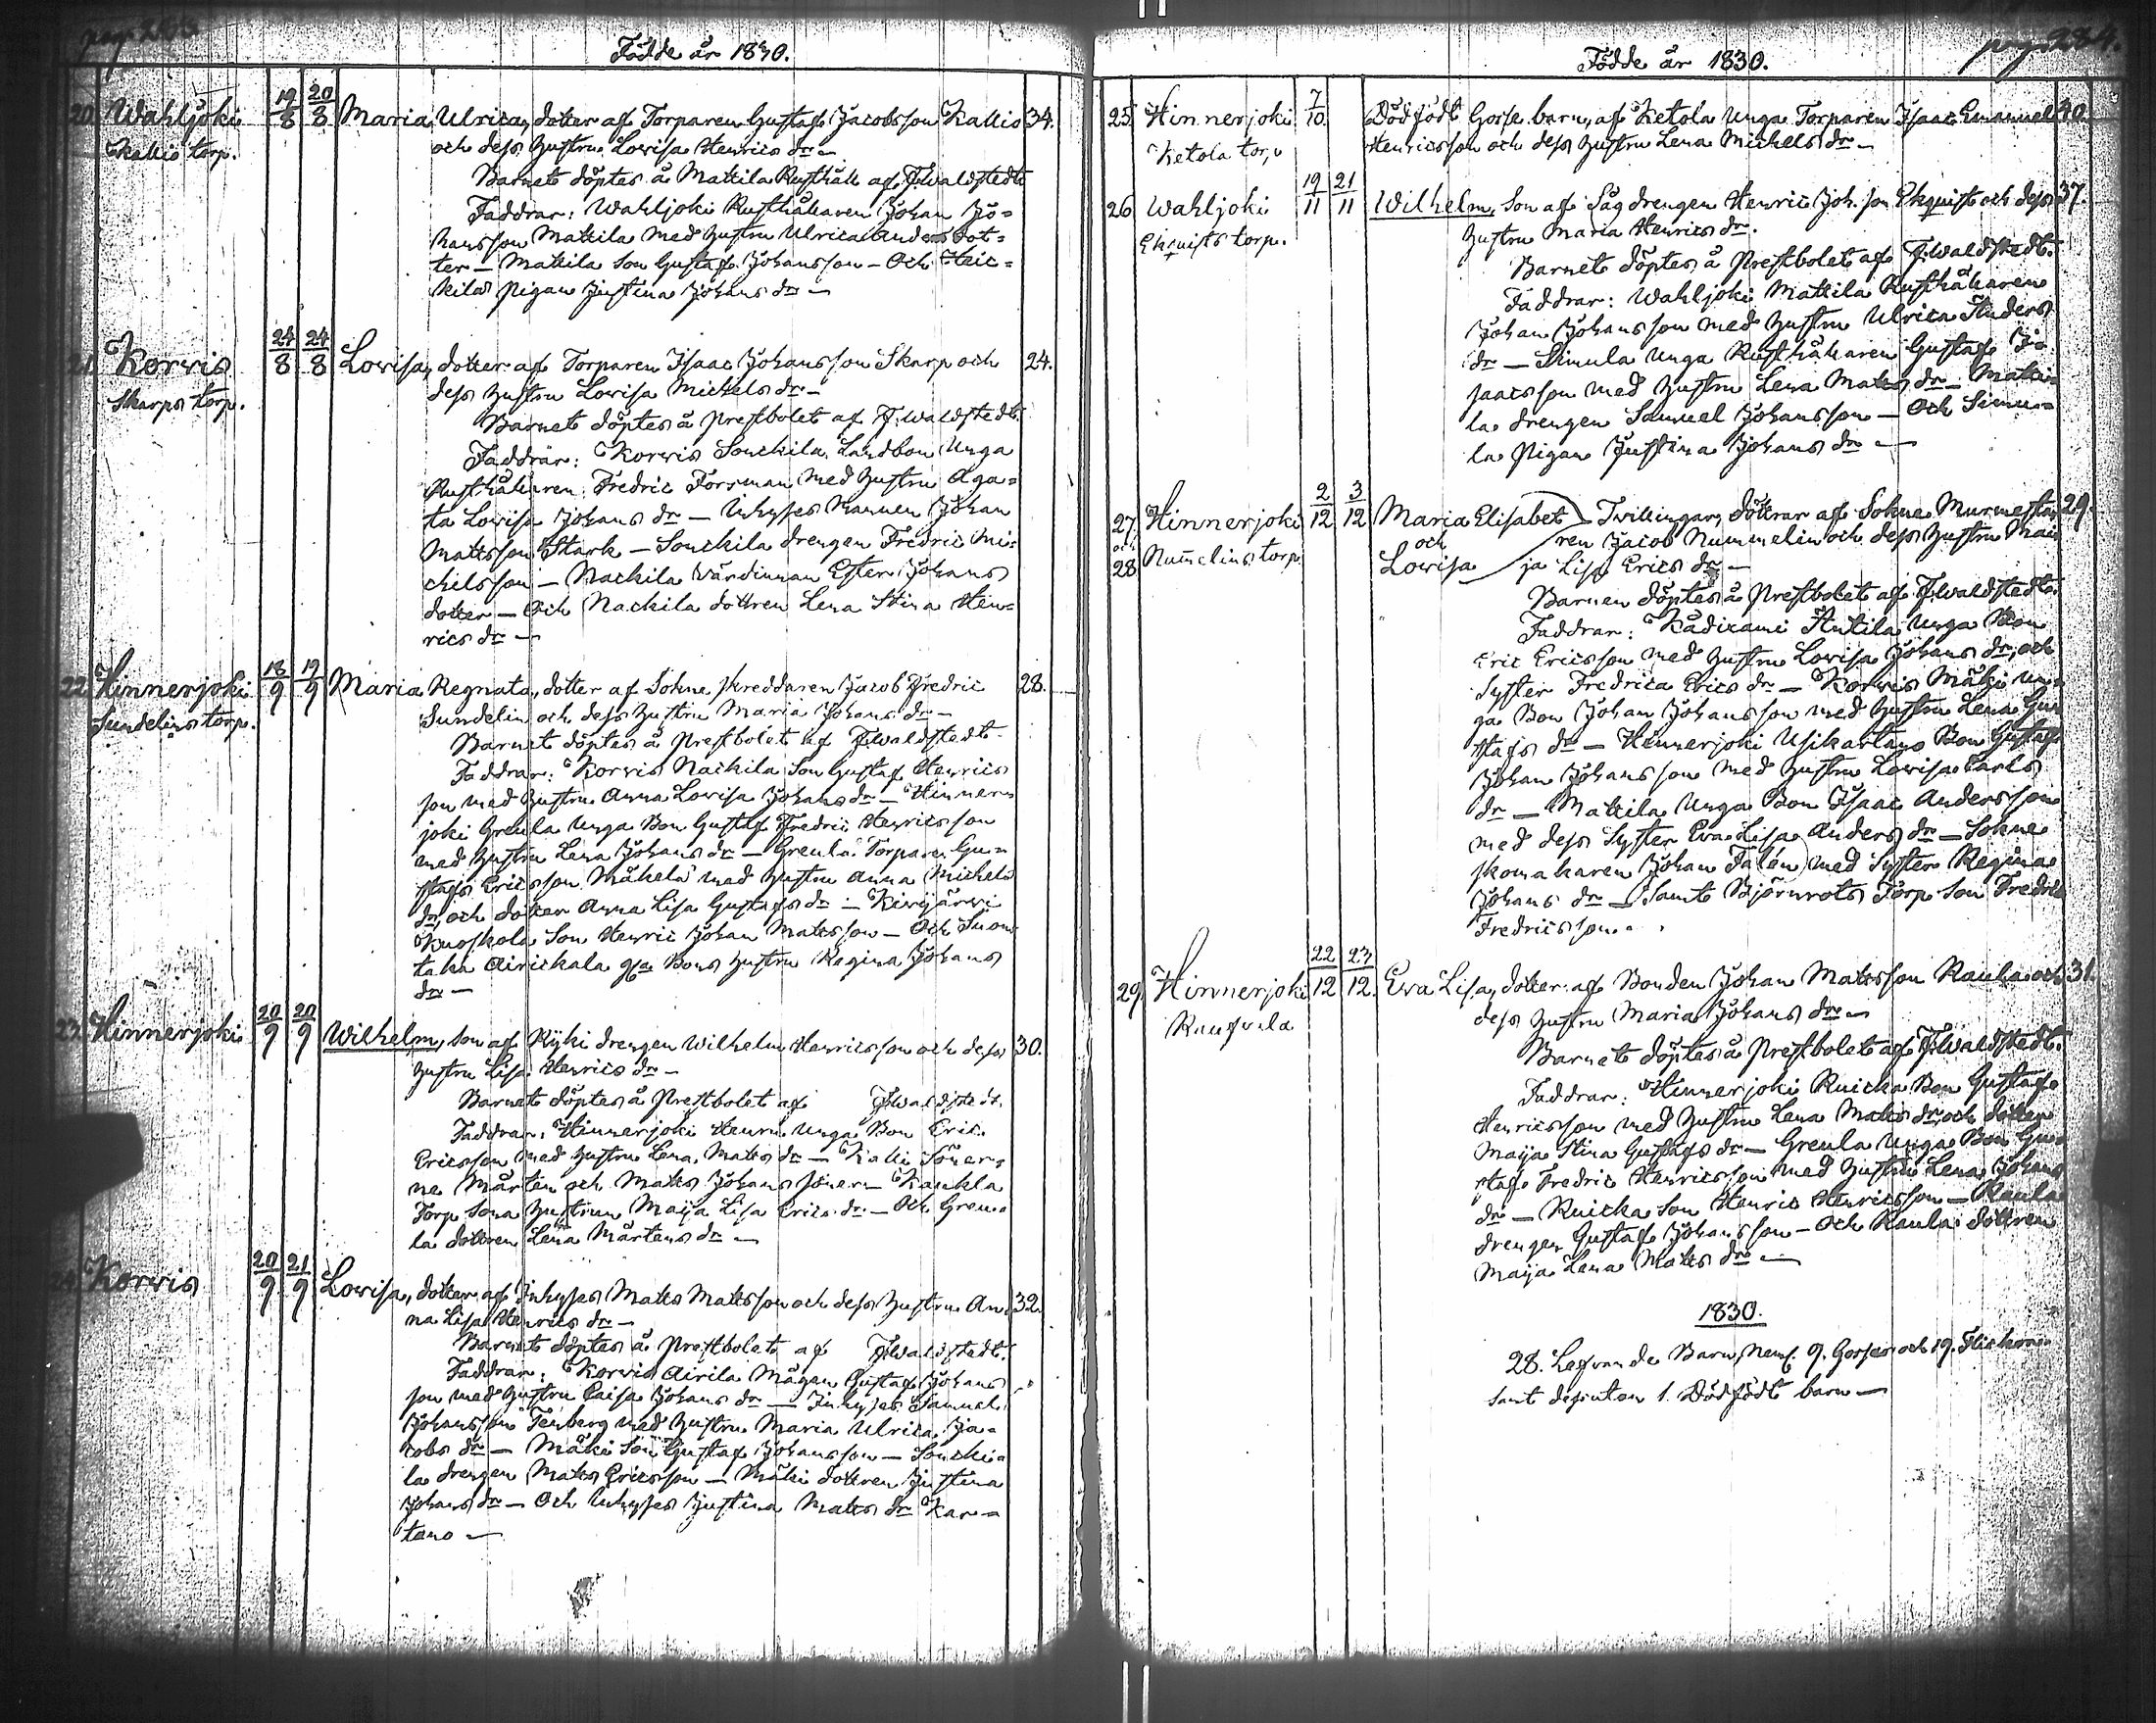 Födde år 1830.
20. Wahljoki 19/8 20/8 Maria Ulrica, dotter af Torparen Gustaf Jacobsson Kallio 34.
Kallio torp. och dess hustru Lovisa Henrics dr —
Barnet döptes å Mattila Rusthåll af F. Waldstedt
Faddrar: Wahljoki Rusthållaren Johan Jo=
hansson Mattila med hustru Ulrica Anders dot=
ter — Mattila Son Gustaf Johansson — Och Heic=
kilas pigan Justina Johans dr —
21. Korvis 24/8 24/8 Lovisa, dotter af Torparen Isaac Johansson Skarp och 24.
Skarps torp. dess hustru Lovisa Michels dr —
Barnet döptes å Prestbolet af F. Waldstedt.
Faddrar: Korvis Souckila Landbon Unga
Rusthållaren Fredric Forsman med hustru Aga=
ta Lovisa Johans dr — Inhyses Mannen Johan
Mattsson Stark — Souckila drengen Fredric Mi=
chelsson — Nackila Värdinnan Ester Johans
dotter — Och Nackila dottren Lena Stina Hen=
rics dr —
22. Hinnerjoki 18/9 19/9 Maria Regnata, dotter af Sokne skreddaren Jacob Fredric 28.
Sundelins torp. Sundelin och dess hustru Maria Johans dr —
Barnet döptes å Prestbolet af F. Waldstedt
Faddrar: Korvis Nackila Son Gustaf Henrics
son med hustru Anna Lovisa Johans dr — Hinner=
joki Greula Unga Bon Gustaf Fredric Henricsson
med hustru Lena Johans dr — Greula Torparen Gu=
stafs Ericsson Mäkelä med hustru Anna Michels
dr, och dotter Anna Lisa Gustafs dr — Kirijärvi
Kuoskola Son Henric Johan Mattsson — Och Suon
taka Airickala Bons hustru Regina Johans
dr —
23. Hinnerjoki 20/9 20/9 Wilhelm, Son af Kyki drengen Wilhelm Henricsson och dess 30.
hustru Lisa Henrics dr —
Barnet döptes å Prestbolet af F. Waldstedt.
Faddrar: Hinnerjoki Unga Bon Eric
Ericsson med hustru Lena Matts dr — Kalli Söner=
ne Mårten och Matts Johans söner — Kaukla
Torp Sona hustrun Maija Lisa Erics dr — Och Greu=
la dottren Lena Mårtens dr —
24. Korvis 20/9 21/9 Lovisa, dotter af Inhyses Matts Mattsson och dess hustru An= 32.
na Lisa Henrics dr —
Barnet döptes å Prestbolet af F. Waldstedt.
Faddrar: Korvis Airila Mågen Gustaf Johans
son med hustru Caisa Johans dr — Inhyses Samuel
Johansson Tenberg med hustru Maria Ulrica Ja=
cobs dr — Mäki Son Gustaf Johansson — Soucki=
la drengen Matts Ericsson — Mäki dottren Justina
Johans dr — Och Inhyses Justina Matts dr Kar=
tano —
pag. 284.
Födde år 1830.
25. Hinnerjoki 7/10 Dödfödt Gosse barn, af Ketola Unga Torparen Isaac Emanuel 40.
Ketola torp Henricsson och dess hustru Lena Michels dr —
26. Wahljoki 19/11 21/11 Wilhelm, Son af Såg drengen Henric Joh. son Ekquist och dess 37.
Ekquists torp. hustru Maria Henrics dr.
Barnet döptes å Prestbolet af F. Waldstedt.
Faddrar: Wahljoki Mattila Rusthållaren
Johan Johansson med hustru Ulrica Anders
dr — Simula Unga Rusthållaren Gustaf I=
saacsson med hustru Lena Matts dr — Matti=
la drengen Samuel Johansson — Och Simu=
la Pigan Justina Johans dr —
27. Hinnerjoki 2/12 3/12 Maria Elisabet Tvillingar, döttrar af Sokne Murmesta 29.
och och ren Jacob Nummelin och dess hustru Mai
28 Num̅elins torp Lovisa ja Lisa Erics dr —
Barnen döptes å Prestbolet af F. Waldstedt.
Faddrar: Kådixami Antila Unga Bon
Eric Ericsson med hustru Lovisa Johans dr, och
Syster Fredrica Erics dr — Korvis Mäki un=
ga Bon Johan Johansson med hustru Lena Gu
stafs dr — Hinnerjoki Usikartano Bon Gustaf
Johan Johansson med hustru Lovisa Carls
dr — Mattila Unga Bon Isaac Andersson
med dess Syster Eva Lisa Anders dr — Sokne
skomakaren Johan Falén med Syster Regina
Johans dr — Samt Björnrots Torp Son Fredric
Fredricsson.
29. Hinnerjoki 22/12 23/12. Eva Lisa, dotter af Bonden Johan Mattsson Raula och 31.
dess hustru Maria Johans dr —
Barnet döptes å Prestbolet af F. Waldstedt.
Faddrar: Hinnerjoki Ruicka Bon Gustaf
Henricsson med hustru Lena Matts dr, och dotter
Maija Stina Gustafs dr — Greula Unga Bon Gu=
staf Fredric Henricsson med hustru Lena Johans
dr — Ruicka Son Henric Henricsson — Raula
drengen Gustaf Johansson — Och Raula dottren
Maija Lena Matts dr —
1830.
28. Lefvande Barn, Neml. 9. Gossar och 19. Flickor
samt dessutom 1. Dödfödt barn —